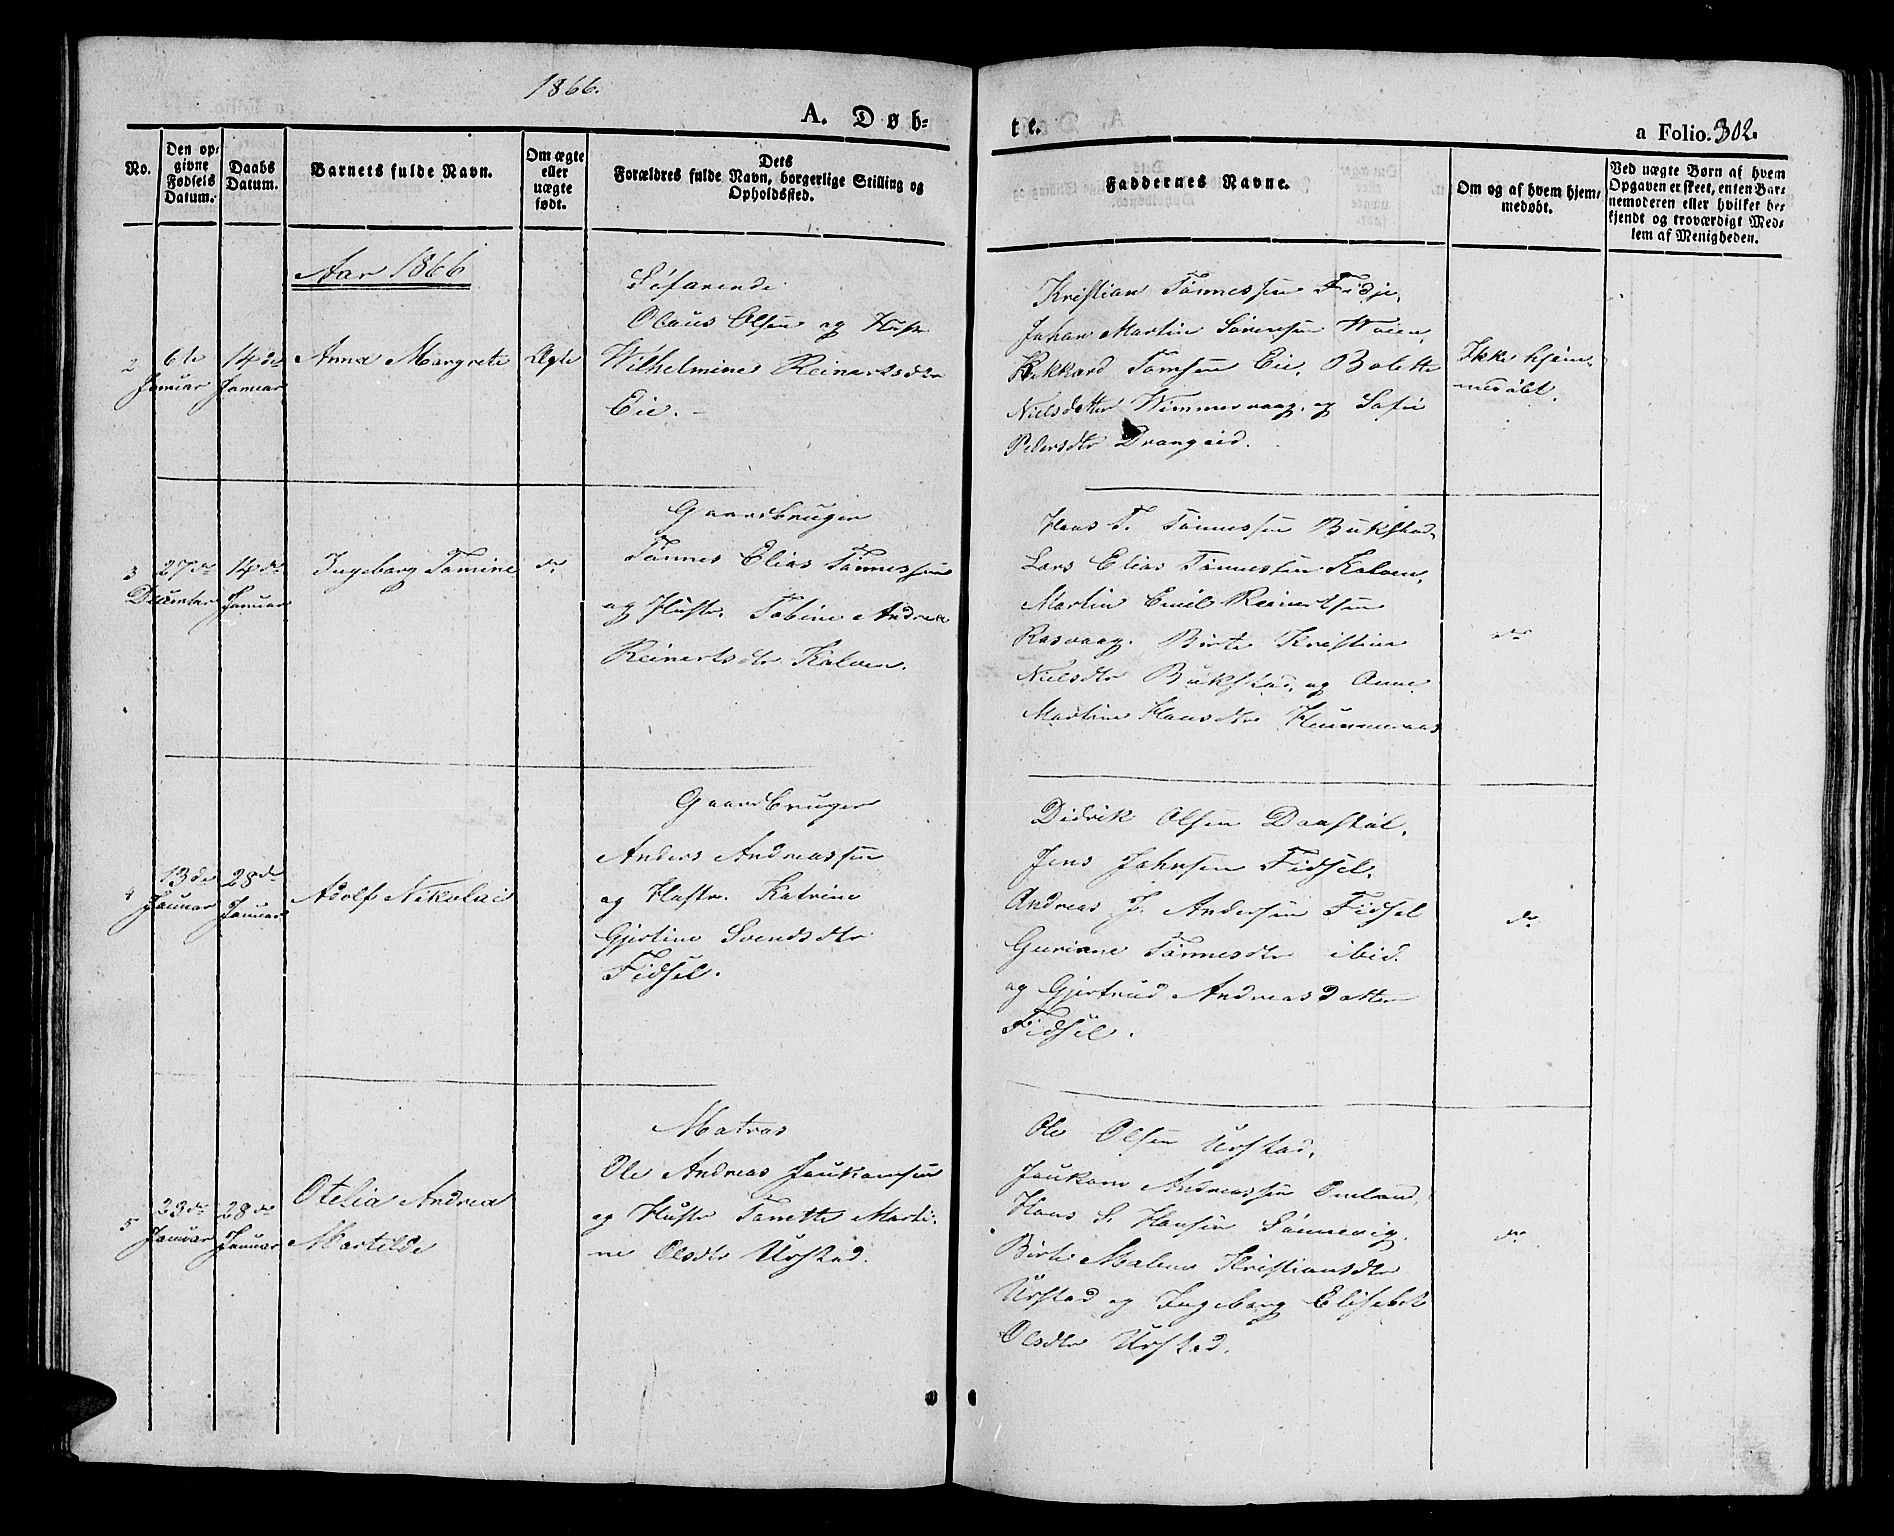 1866.
A. Døb=
te.
a Folio. 302.
No.
Den op=
givne
Fødsels
Datum.
Daabs
Datum.
Barnets fulde Navn.
Om ægte
eller
uægte
født.
Dets
Forældres fulde Navn, borgerlige Stilling og
Opholdssted.
Faddernes Navne.
Om og af hvem hjem=
medøbt.
Ved uægte Børn af hvem
Opgaven er skeet, enten Bar=
nemoderen eller hvilket be=
kjendt og troværdigt Med=
lem af Menigheden.
Aar 1866
2
6te
Januar
14de
Januar
Anna Margrete
Ægte
Søfarende
Olaus Olsen og Hustr
Wilhelmine Reinertsdtr
Eie.
Kristian Tønnessen Fidje,
Johan Martin Sørensen Woien,
Rikkard Tomsen Eie, Bolette
Nielsdatter Wimmervaag, og Sofie
Pedersdtr Drangeid.
Ikke hjem-
medøbt.
3
27de
December
14de
Januar
Ingeborg Tomine
do
Gaardbruger
Tønnes Elias Tønnessen
og Hustr. Tobine Andrea
Reinertsdtr Kalven.
Hans T. Tønnessen Bukstad,
Lars Elias Tønnessen Kalven,
Martin Emil Reinertsen
Rasvaag. Birte Kristine
Nielsdtr Bukstad, og Anne
Martine Hansdtr
do
4
13de
Januar
28de
Januar
Adolf Nikolai
Gaardbruger
Anders Andreassen
og Hustr. Katrine
Gjertine Svendsdtr
Fidsel.
Didrik Olsen
Jens Johnsen Fidsel.
Andreas J. Andersen Fidsel
Guriane Tønnesdtr ibid.
og Gjertrud Andreasdatter
Fidsel.
do
5
23de
Januar
28de
Januar
Otelia Andrea
Martilde
Matros
Ole Andreas Joukomsen
og Hustr Tonette Marti-
ne Olsdtr Urstad.
Ole Olsen Urstad,
Joukom Andreassen Omland,
Hans S. Hansen Sønnevig,
Birte Malene Kristiansdtr
Urstad og Ingeborg Elisabet
Olsdtr Urstad.
do